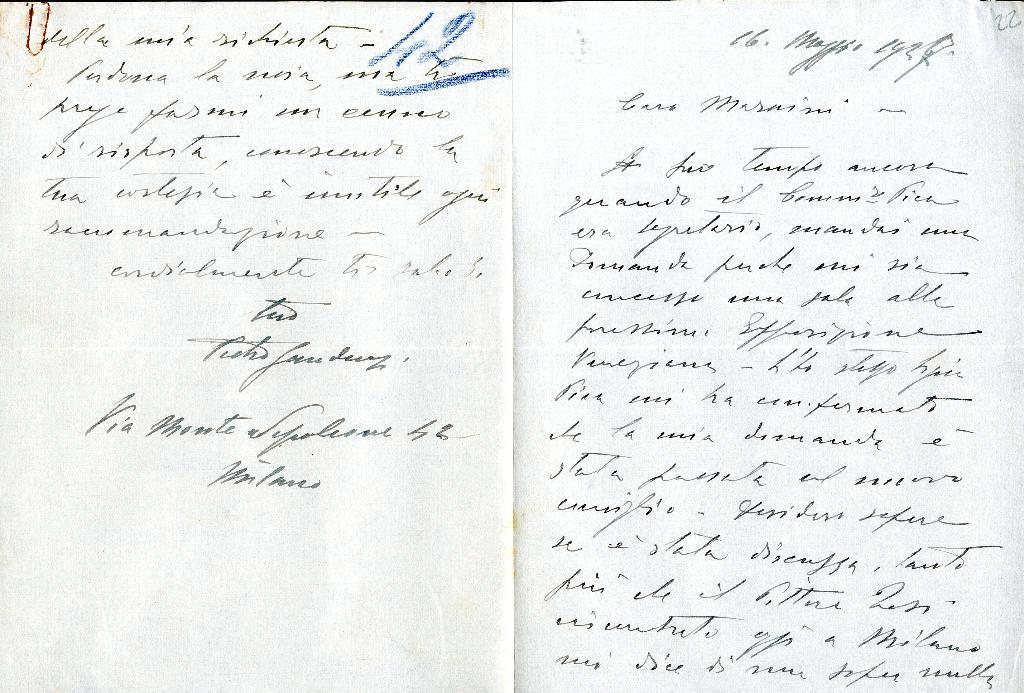 22
16. Maggio 1927
Caro Maraini —
A suo tempo ancora
quando il Comm.re Pica
era segretario, mandai una
domanda perche mi sia
concessa una sala alla
prossima Esposizione
Veneziana — Lo stesso
Pica mi ha confermato
che la mia domanda è
stata passata al nuovo
consiglio — desidero sapere
se è stata discussa, tanto
più che il Pittore
incontrato oggi a Milano
mi dice di non saper nulla
42
della mia richiesta —
Perdona la noia, ma ti
prego farmi un cenno
di risposta, conoscendo la
tua cortesia è inutile ogni
raccomandazione —
cordialmente ti saluto.
tuo
Pietro Gaudenzi.
Via Monte Napoleone 42
Milano